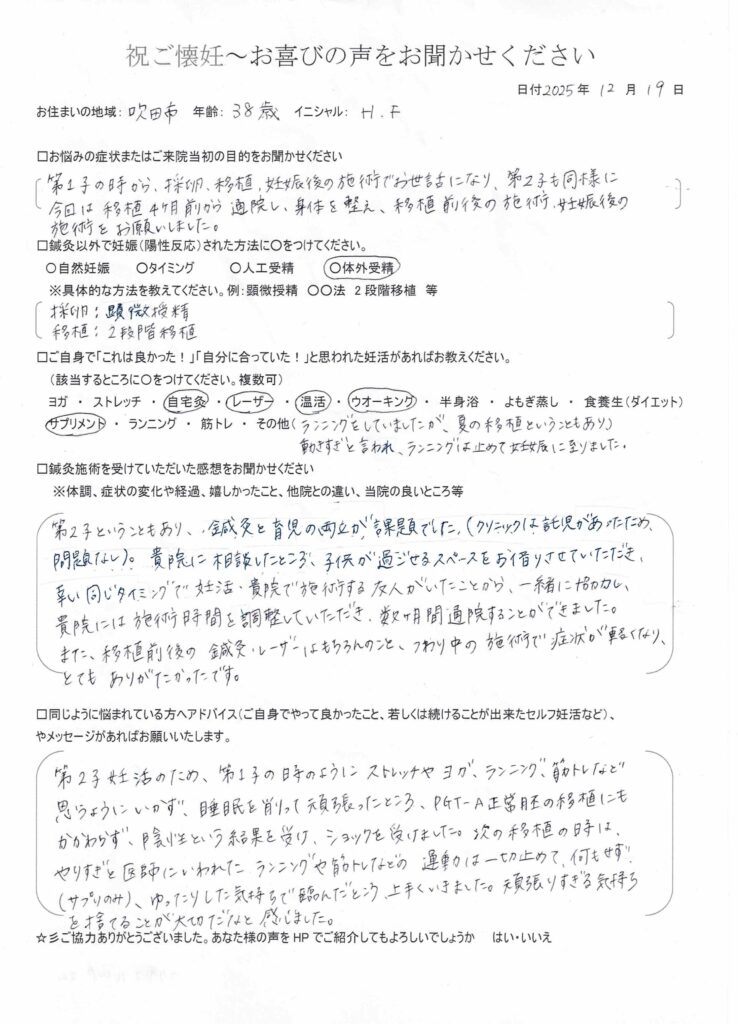 祝ご懐妊～お喜びの声をお聞かせください
日付2025年 12月 19日
お住まいの地域：吹田市 年齢：38歳 イニシャル：H.F
□お悩みの症状またはご来院当初の目的をお聞かせください
第1子の時から、採卵、移植、妊娠後の施術でお世話になり、第2子も同様に
今回は移植4ヶ月前から通院し、身体を整え、移植前後の施術、妊娠後の
施術をお願いしました。
□鍼灸以外で妊娠（陽性反応）された方法に〇をつけてください。
〇自然妊娠 〇タイミング 〇人工受精 〇体外受精
※具体的な方法を教えてください。例：顕微授精 〇〇法 2段階移植 等
採卵：顕微授精
移植：2段階移植
□ご自身で「これは良かった！」「自分に合っていた！」と思われた妊活があればお教えください。
（該当するところに〇をつけてください。複数可）
ヨガ ・ ストレッチ ・ 自宅灸 ・ レーザー ・ 温活 ・ ウオーキング ・ 半身浴 ・ よもぎ蒸し ・ 食養生（ダイエット）
サプリメント ・ ランニング ・ 筋トレ ・ その他（ランニングをしていましたが、夏の移植ということもあり）
動きすぎと言われ、ランニングは止めて妊娠に至りました。
□鍼灸施術を受けていただいた感想をお聞かせください
※体調、症状の変化や経過、嬉しかったこと、他院との違い、当院の良いところ等
第2子ということもあり、鍼灸と育児の両立が課題でした。（クリニックは託児があったため、
問題なし）。貴院に相談したところ、子供が過ごせるスペースをお借りさせていただき、
幸い同じタイミングで妊活・貴院で施術する友人がいたことから、一緒に協力し、
貴院には施術時間を調整していただき、数ヶ月間通院することができました。
また、移植前後の鍼灸・レーザーはもちろんのこと、つわり中の施術で症状が軽くなり、
とてもありがたかったです。
□同じように悩まれている方へアドバイス（ご自身でやって良かったこと、若しくは続けることが出来たセルフ妊活など）、
やメッセージがあればお願いいたします。
第2子妊活のため、第1子の時のようにストレッチやヨガ、ランニング、筋トレなど
思うようにいかず、睡眠を削って頑張ったところ、PGT-A正常胚の移植にも
かかわらず、陰性という結果を受け、ショックを受けました。次の移植の時は、
やりすぎと医師にいわれたランニングや筋トレなどの運動は一切止めて、何もせず、
（サプリのみ）、ゆったりした気持ちで臨んだところ、上手くいきました。頑張りすぎる気持ち
を捨てることが大切だなと感じました。
☆彡ご協力ありがとうございました。あなた様の声をHPでご紹介してもよろしいでしょうか はい・いいえ